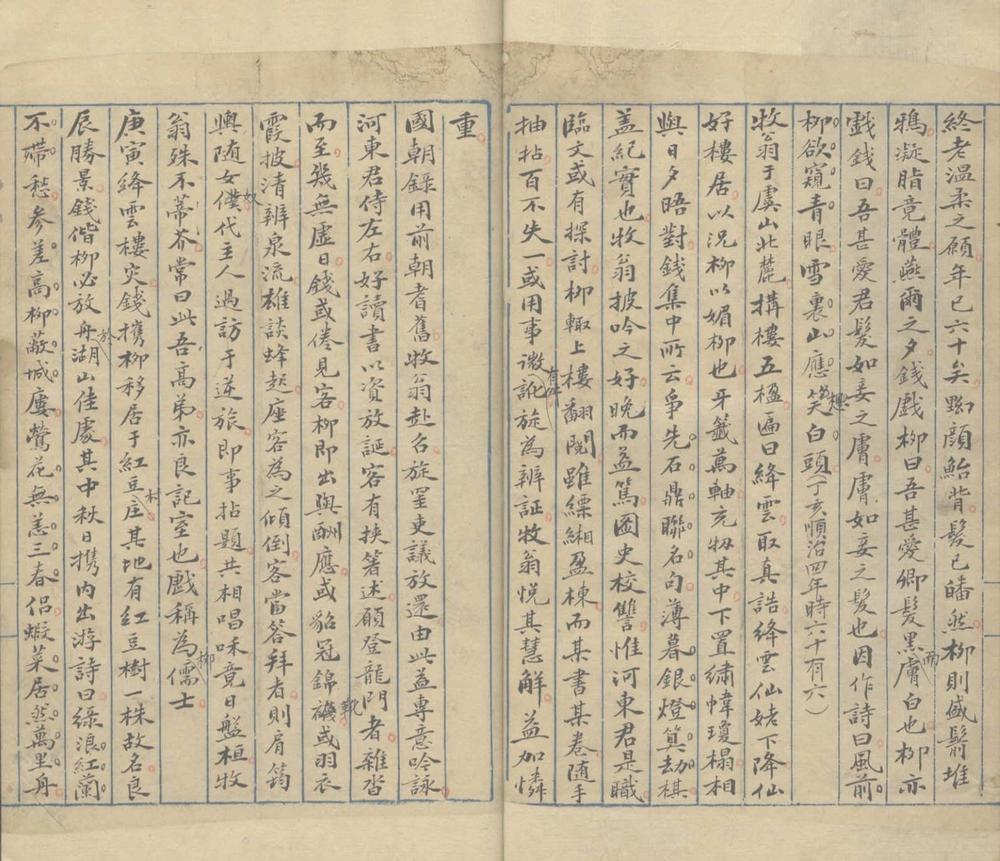 終老溫柔之願年已六十矣黝顔鮐背髮已皤然柳則盛鬋堆
鴉凝脂竟體燕爾之夕錢戲柳曰吾甚愛卿髮黑而膚白也柳亦
戲錢曰吾甚愛君髮如妾之膚膚如妾之髮也因作詩曰風前
柳欲窺青眼雪裏山應想笑白頭(丁亥順治四年時六十有六)
牧翁于虞山北麓搆樓五楹匾曰絳雲取真誥絳雲仙姥下降仙
好樓居以況柳以媚柳也牙籤萬軸充牣其中下置繡幃瓊榻相
與日夕晤對錢集中所云爭先石鼎聯名句薄暮銀燈算劫棋
盖紀實也牧翁披吟之好晚而益篤圖史校讐惟河東君是職
臨文或有探討柳輙上樓翻閱雖縹緗盈棟而某書某卷随手
抽拈百不失一或用事微訛有舛旋為辨証牧翁悦其慧解益加憐
重
國朝錄用前朝耆舊牧翁赴召旋罣吏議放還由此益專意吟詠
河東君侍左右好讀書以資放誕客有挾著述願登龍門者雜沓
而至幾無虚日錢或倦見客柳即出與酬應或貂冠錦靴或羽衣
霞披清辨泉流雄談蜂起座客為之傾倒客當答拜者則肩筠
輿随女奴代主人過訪于逆旅即事拈題共相唱和竟日盤桓牧
翁殊不蔕芥常曰此吾高弟亦良記室也戲稱為柳儒士
庚寅絳雲樓灾錢攜柳移居于紅豆村庄其地有紅豆樹一株故名良
辰勝景錢偕柳必放舟於湖山佳處其中秋日携内出游詩曰綠浪紅蘭
不𤃩愁參差高柳蔽城廔鶯花無恙三春侣蝦菜居然萬里舟